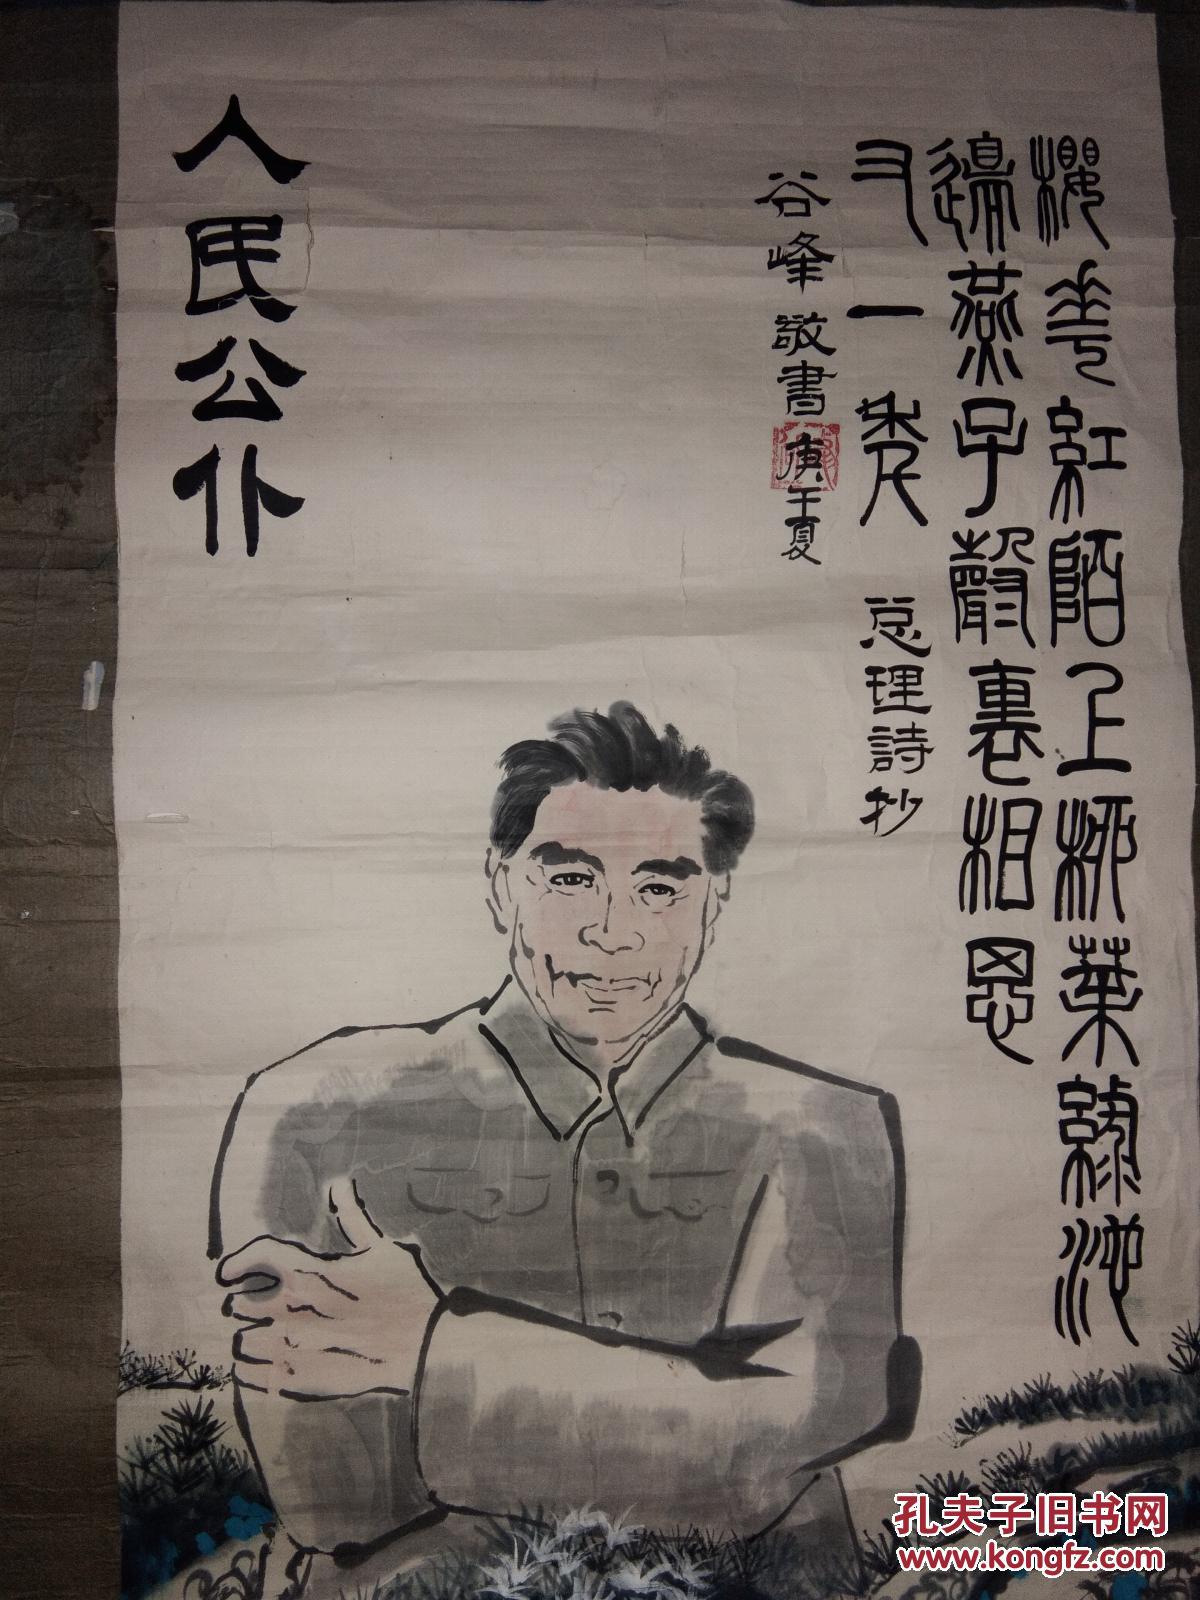 櫻花紅陌上柳葉綠池
邊燕子聲裏相思
又一年　总理詩抄
谷峰敬書
庚午夏
人民公仆
孔夫子旧书网
www.kongfz.com